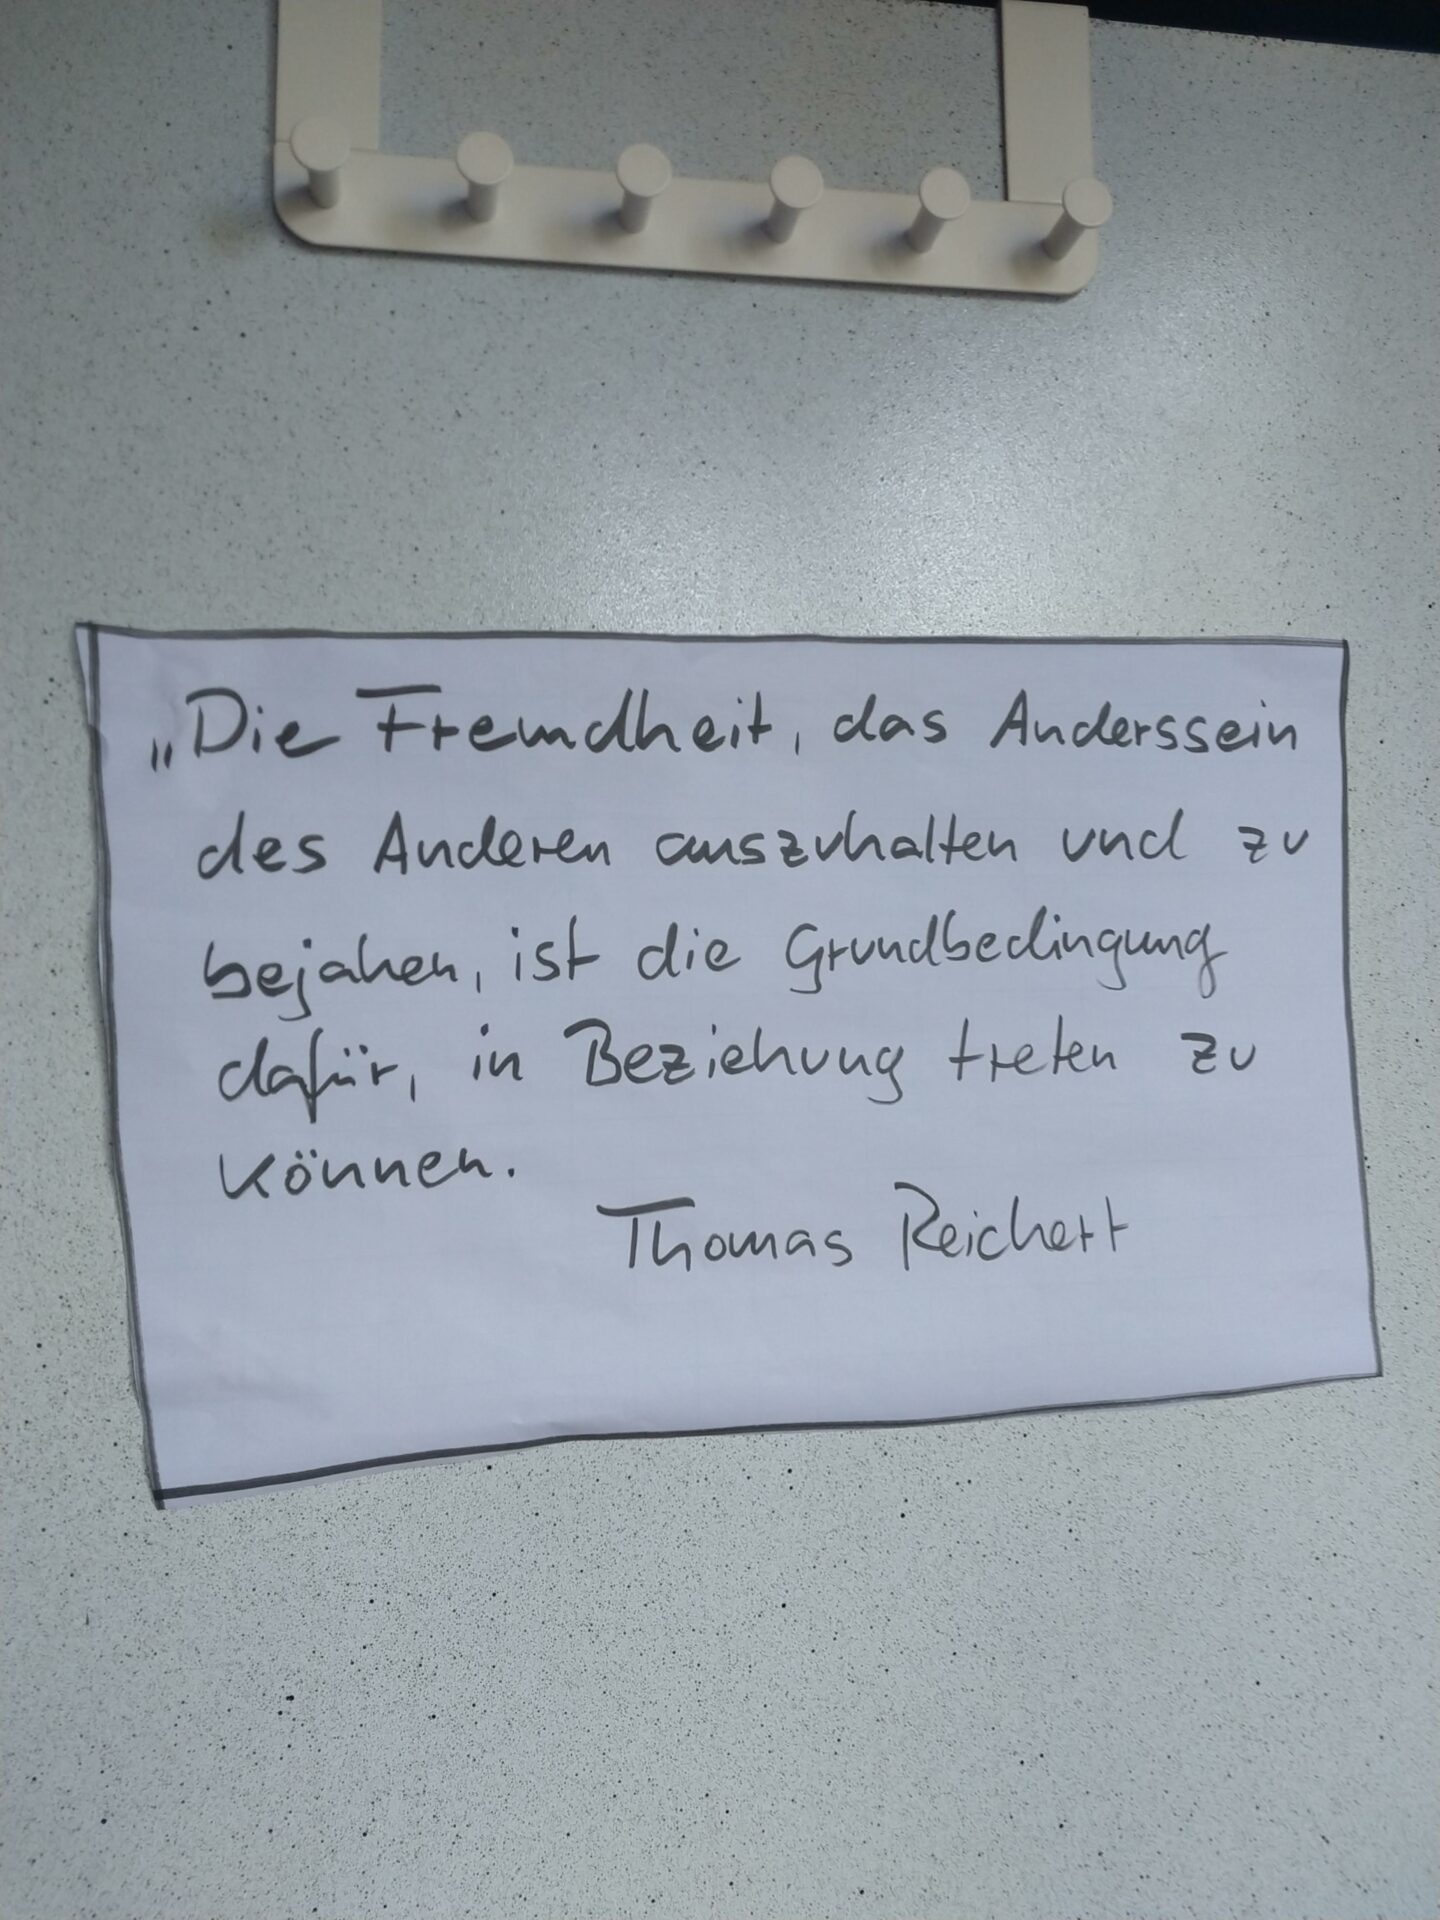 „Die Fremdheit, das Anderssein
des Anderen auszuhalten und zu
bejahen, ist die Grundbedingung
dafür, in Beziehung treten zu
können.
Thomas Reichert